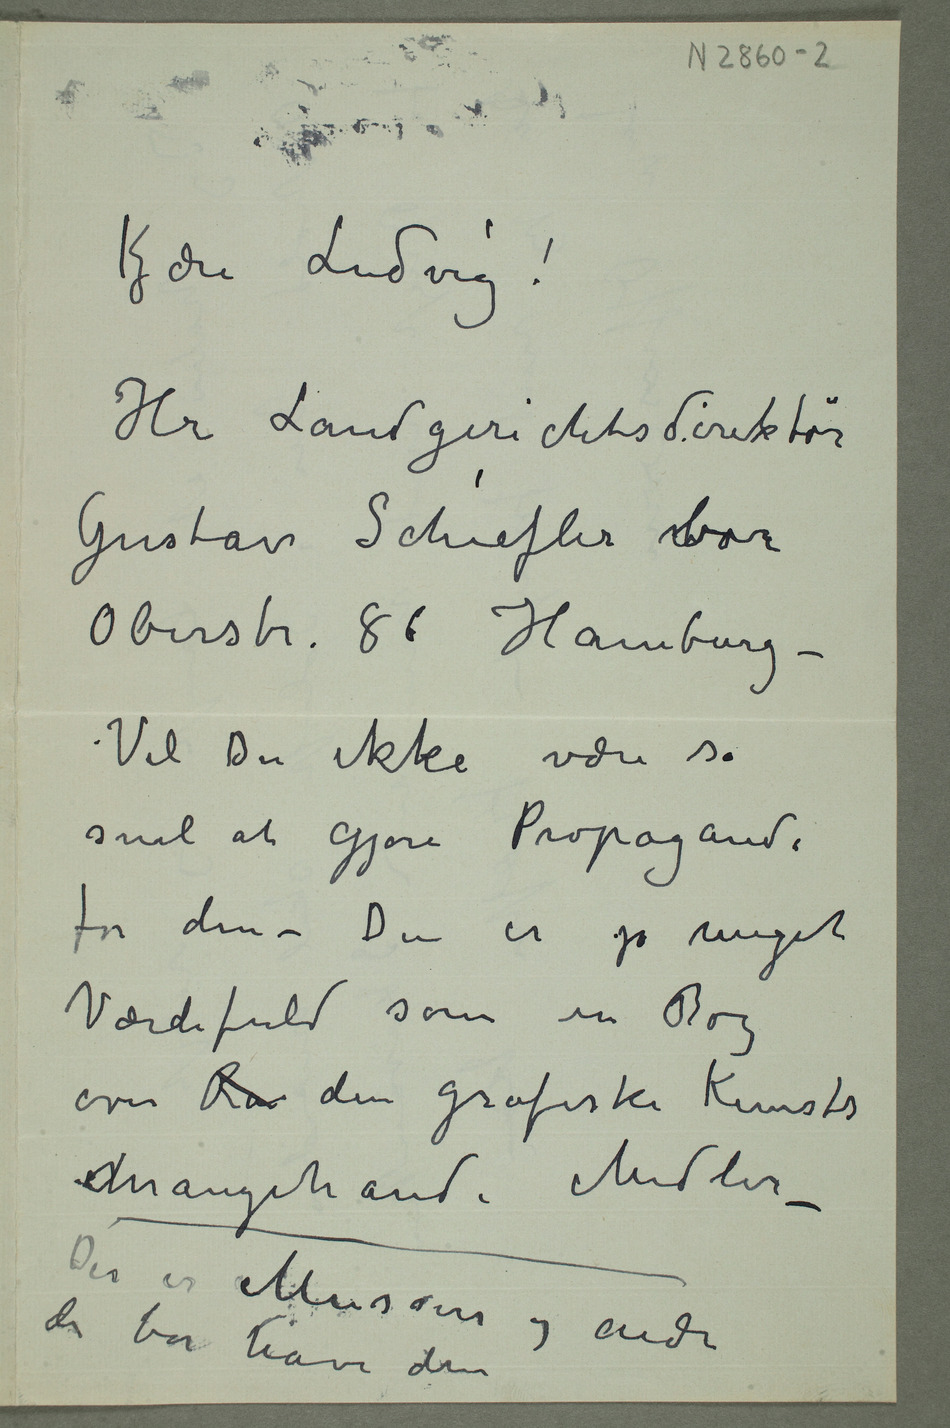 N 2860-2
Kjære Ludvig!
Hr Landgerichtsdirektør
Gustav Schiefler bor
Oberstr. 86 Hamburg –
Vil Du ikke være så
snil at gjøre Propaganda
for den – Den er jo meget
Værdifuld som en Bog
over den grafiske Kunsts
mangehånde Midler –
Der er Museer og andre
der bør have den